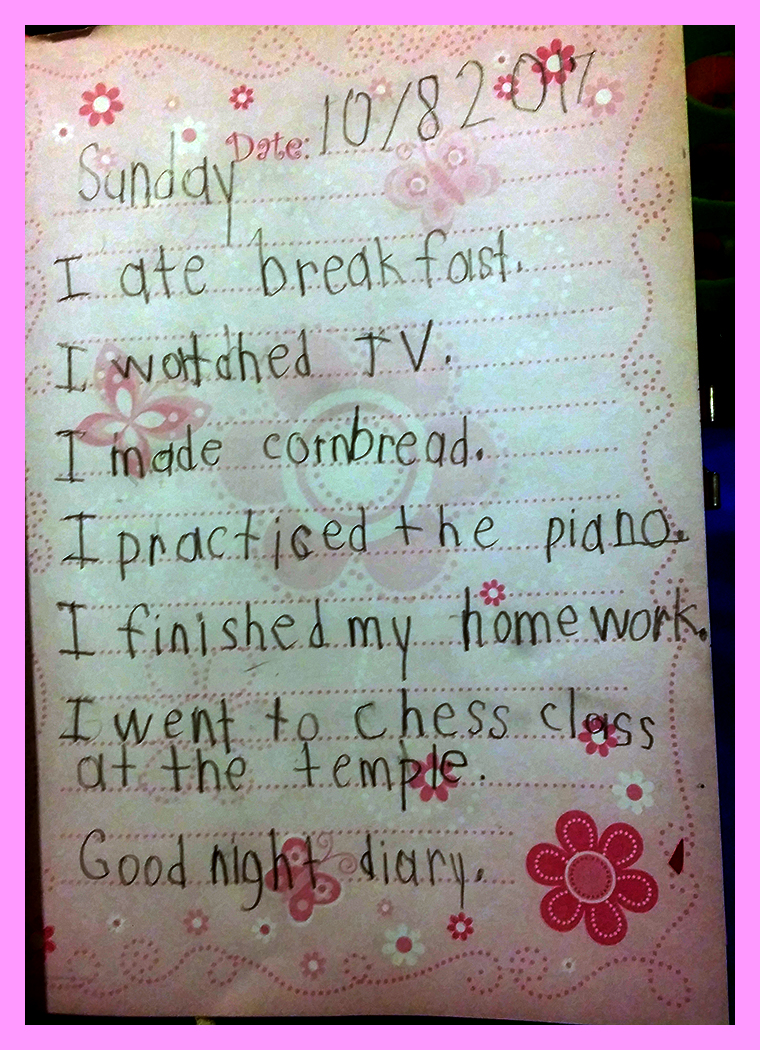 Date: 10/8 2017
Sunday
I ate breakfast.
I watched TV.
I made cornbread.
I practiced the piano.
I finished my homework.
I went to chess class
at the temple.
Good night diary.